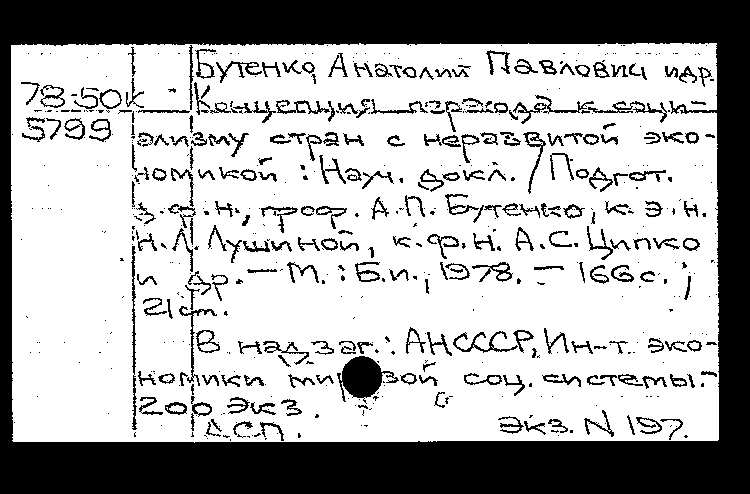 Бутенко Анатолий Павлович и др.
78-50к Концепция перехода к соци-
5799 ализму стран с неразвитой эко-
номикой : Науч. докл. / Подгот.
д.ф.н., проф. А.П. Бутенко, к.э.н.
Н.Л. Лушиной, к.ф.н. А.С. Ципко
и др. — М. : Б.и., 1978. — 166 с. ;
21 cm.
В надзаг.: АН СССР, Ин-т эко-
номики мировой соц. системы. -
200 экз.
ДСП. Экз. N 197.